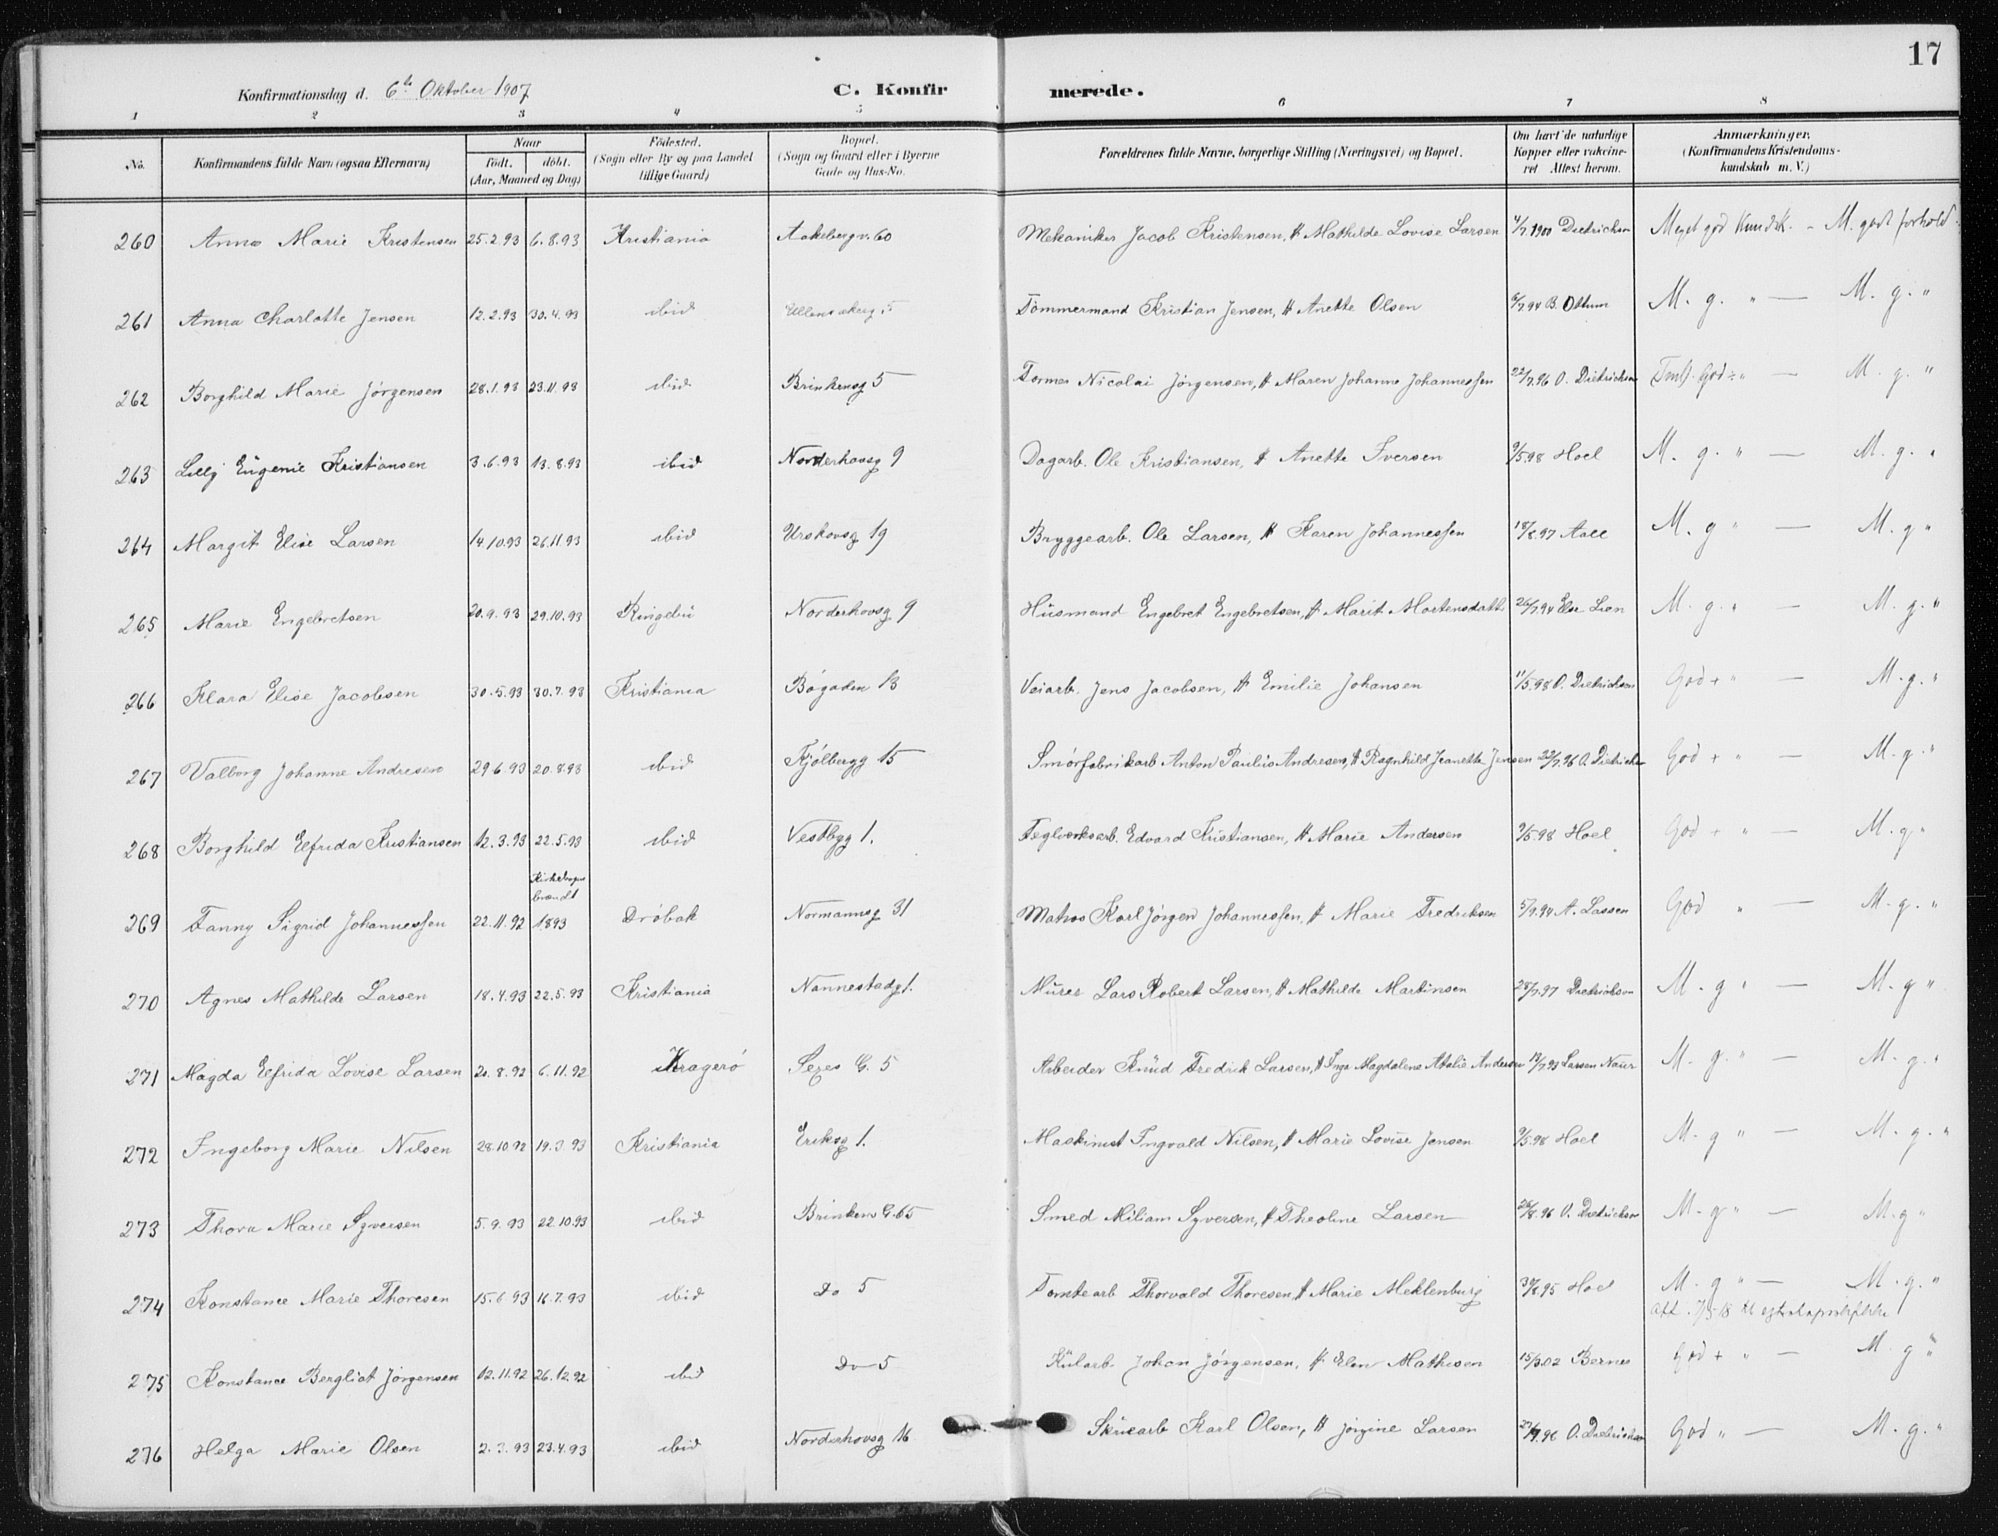 17
Konfirmationsdag d. 6te Oktober 1907 C. Konfirmerede.
1 2 3 4 5 6 7 8
No. Konfirmandens fulde Navn (ogsaa Efternavn) Naar født. døbt. (Aar, Maaned og Dag) Fødested. (Sogn eller By og paa Landet tillige Gaard) Bopæl. (Sogn og Gaard eller i Byerne Gade og Hus-No. Forældrenes fulde Navne, borgerlige Stilling (Næringsvei) og Bopæl. Om havt de naturlige Kopper eller vakcineret Attest herom. Anmærkninger. (Konfirmandens Kristendomskundskab m. V.)
260 Anna Marie Kristensen 25.2.93 6.8.93 Kristiania Aakebergv. 60 Mekaniker Jacob Kristensen, # Mathilde Lovise Larsen 4/7.1900 Dietrichson Meget god Kundsk. - M. godt forhold.
261 Anna Charlotte Jensen 12.2.93 30.4.93 ibid Ullensakerg. 5 Tømmermand Kristian Jensen, # Anette Olsen 6/7.94 B. Ottum M. g. " — M. g. "
262 Borghild Marie Jørgensen 28.1.93 23.11.93 ibid Brinkensg 5 Former Nicolai Jørgensen, # Maren Johanne Johannessen 22/7.96 O. Dietrichson God " — M. g. "
263 Lilly Eugenie Kristiansen 3.6.93 13.8.93 ibid Norderhovsg 9 Dagarb. Ole Kristiansen, # Anette Iversen 9/5.98 Hoel M. g. " — M. g. "
264 Margit Elise Larsen 14.10.93 26.11.93 ibid Urskovsg 19 Bryggearb. Ole Larsen, # Karen Johannessen 18/8.97 Aall M. g " — M. g "
265 Marie Engebretsen 20.9.93 29.10.93 Ringebu Norderhovsg 9 Husmand Engebret Engebretsen, # Marit Mortensdatt. 26/7.94 Elsr Lien M. g. " — M. g. "
266 Klara Elise Jacobsen 30.5.93 30.7.93 Kristiania Bøgaden 13 Veiarb. Jens Jacobsen, # Emilie Johansen 11/5.98 O. Dietrichson God + " — M. g. "
267 Valborg Johanne Andresen 29.6.93 20.8.93 ibid Kjølbergg 15 Smørfabrikarb Anton Paulus Andresen, # Ragnhild Jeanette Jensen 22/7.96 O. Dietrichson God + " — M. g. "
268 Borghild Elfrida Kristiansen 12.3.93 22.5.93 ibid Vestbyg 1. Teglverksarb. Edvard Kristiansen, # Marie Andersen 9/5.98 Hoel God + " — M. g. "
Kirkebogen brændt
269 Fanny Sigrid Johannessen 22.11.92 1893 Drøbak Normannsg 31 Matros Karl Jørgen Johannessen, # Marie Fredriksen 5/9.94 A. Lassen God " — M. g. "
270 Agnes Mathilde Larsen 18.4.93 22.5.93 Kristiania Nannestadg 1. Murer Lars Robert Larsen, # Mathilde Martinsen 28/7.97 Dietrichson M. g " — M. g "
271 Magda Elfrida Lovise Larsen 20.8.92 6.11.92 Kragerø G. 5 Arbeider Knud Fredrik Larsen, # Inga Magdalene Atalie Andersen 19/7.93 Larsen Naur M. g. " — M. g. "
272 Ingeborg Marie Nilsen 28.10.92 19.3.93 Kristiania Eriksg 1. Maskinist Ingvald Nilsen, # Marie Lovise Jensen 9/5.98 Hoel M. g " — M. g. "
273 Thora Marie Syversen 5.9.93 22.10.93 ibid Brinkens G. 65 Smed Miliam Syversen, # Theoline Larsen 26/8.96 O. Dietrichson M. g " — M. g "
274 Konstance Marie Thoresen 15.6.93 16.7.93 ibid Do 5 Tomtearb Thorvald Thoresen, # Marie Meklenburg 30/8.95 Hoel M. g " — M. g. "
Att. 7/5 18 til
275 Konstance Bergliot Jørgensen 12.11.92 26.12.92 ibid Do 5 Kularb. Johan Jørgensen, # Elen Mathisen 15/3.02 Bernes God + " — M. g "
276 Helga Marie Olsen 2.3.93 23.4.93 ibid Norderhovsg 16 Skruearb Karl Olsen, # Jørgine Larsen 27/7.96 O. Dietrichson God " — M. g. "